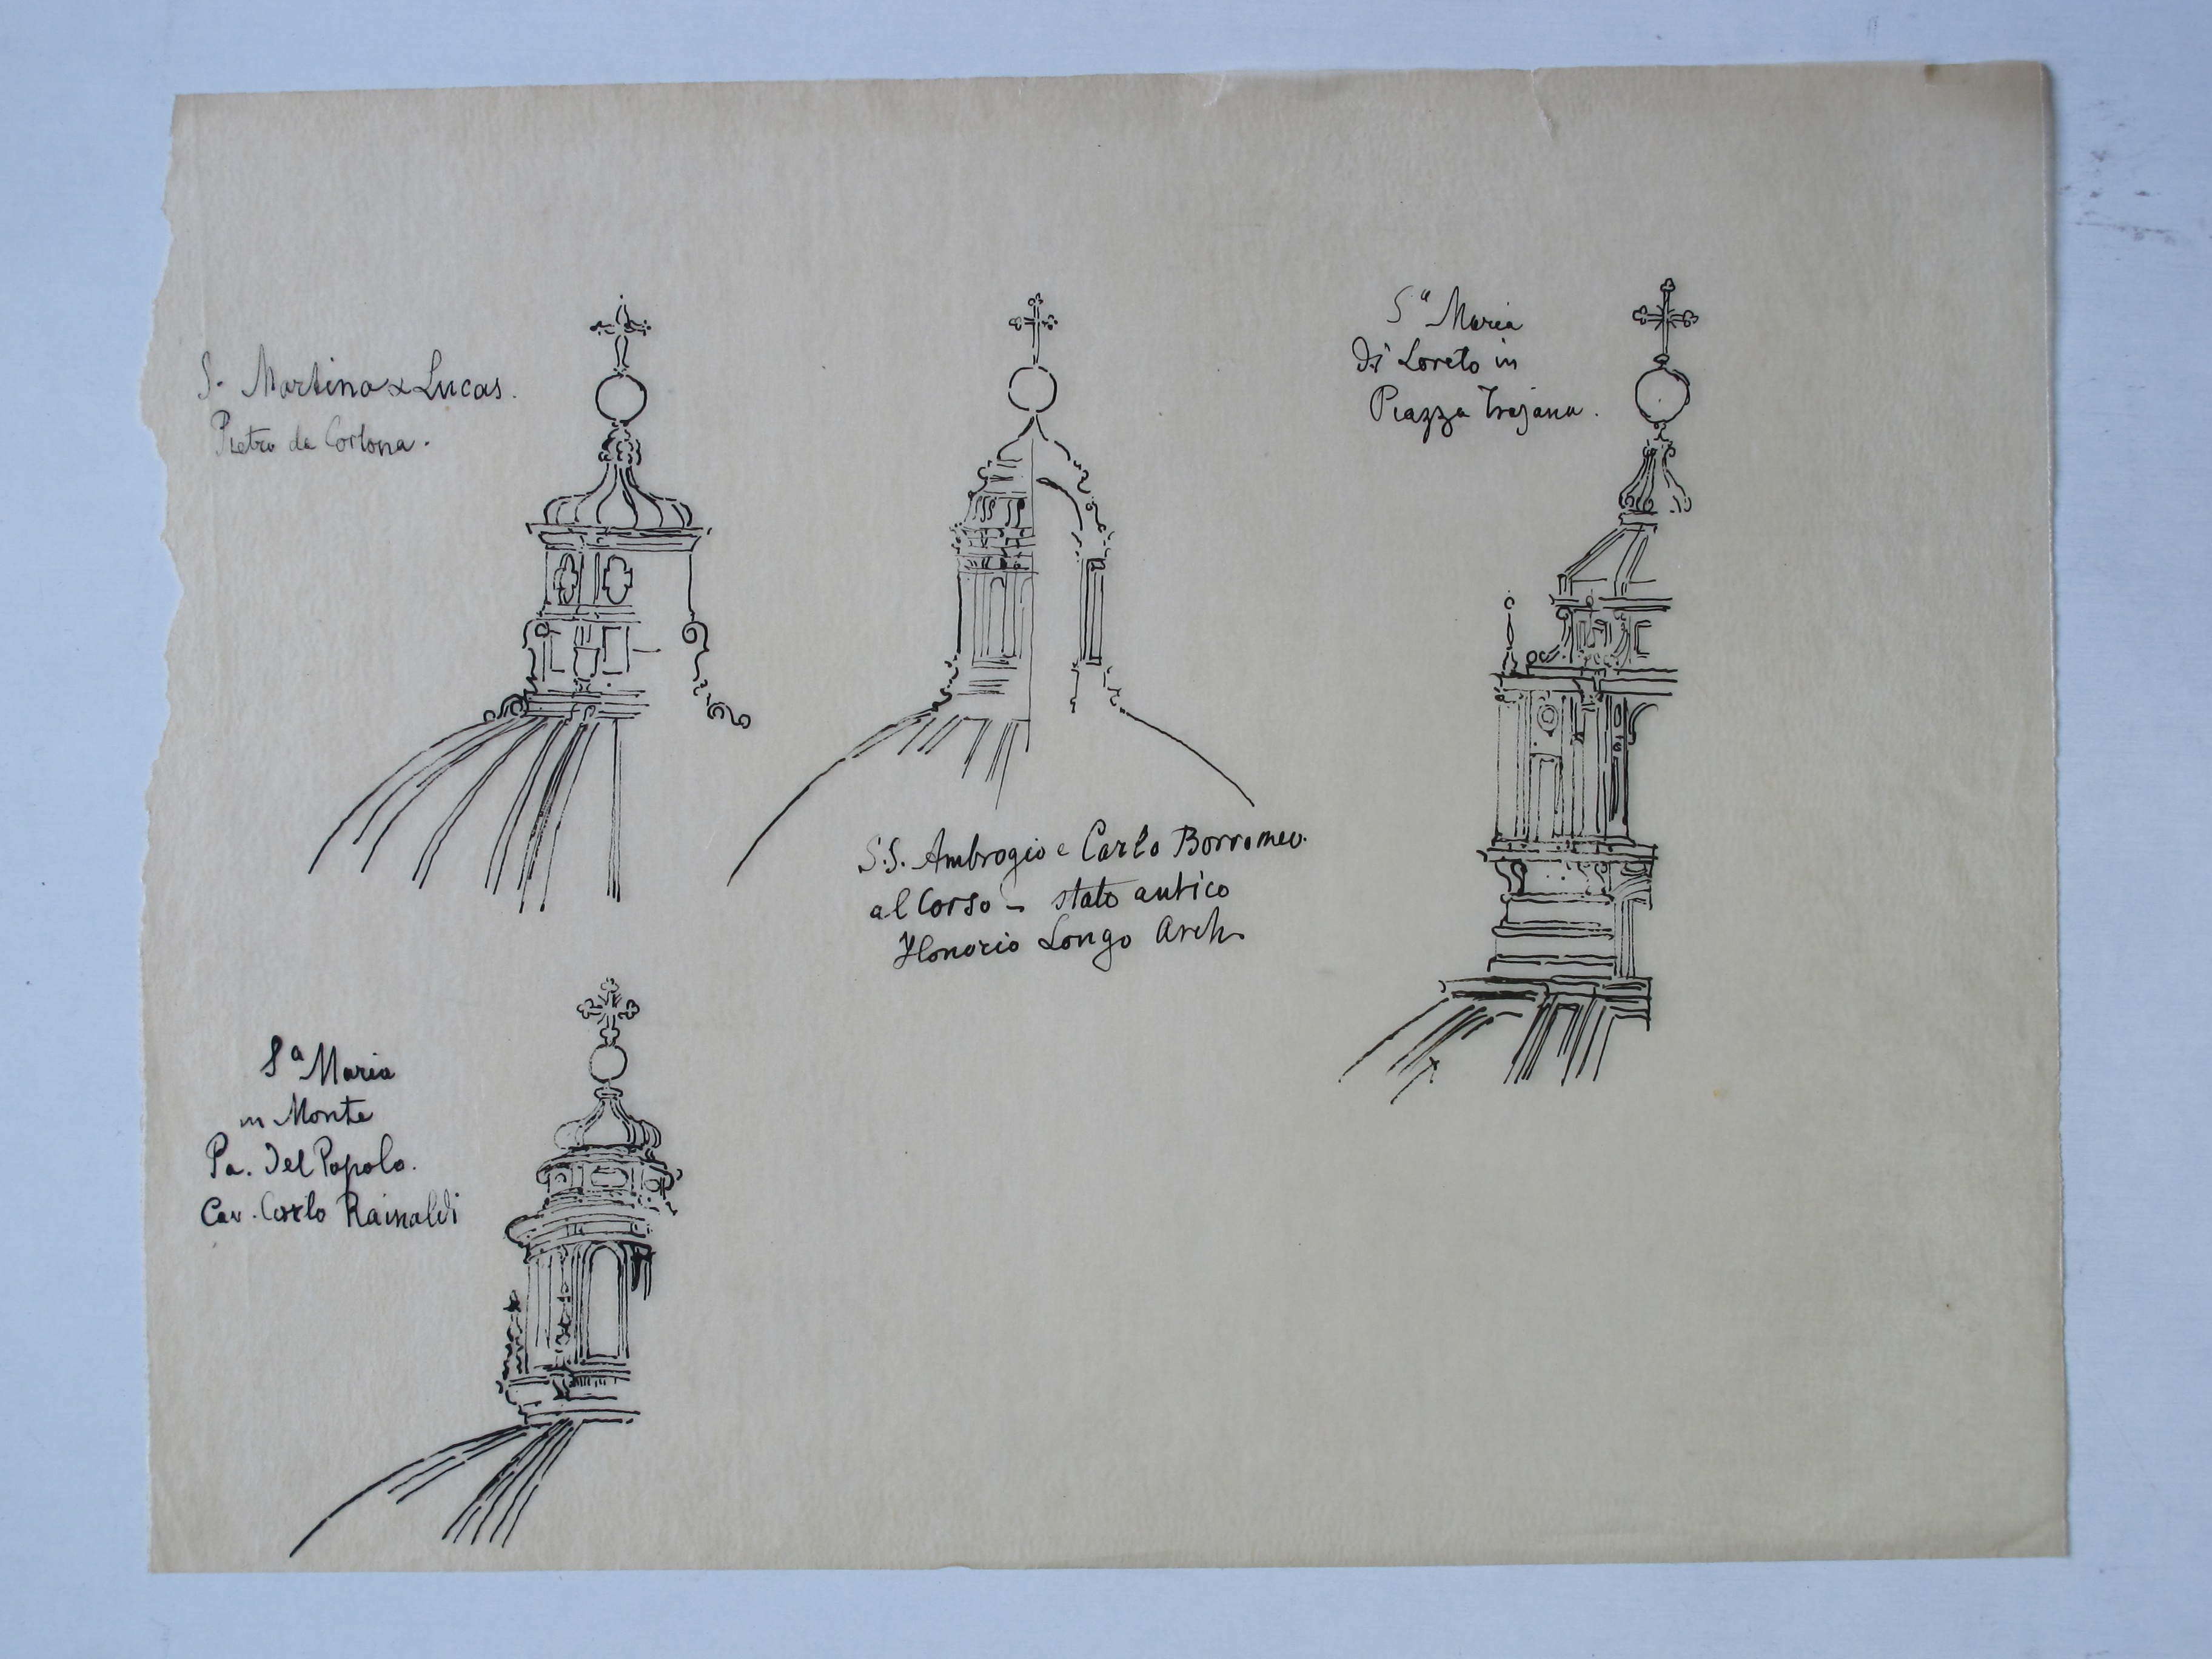 S. Martino & Lucas.
Pietro da Cortona.
S.S. Ambrogio e Carlo Borromeo.
al Corso - stato antico
Honorio Longo Arch.
Sª Maria
di Loreto in
Piazza Trajana.
Sª Maria
in Monte
Pa. Del Popolo.
Cav. Carlo Rainaldi